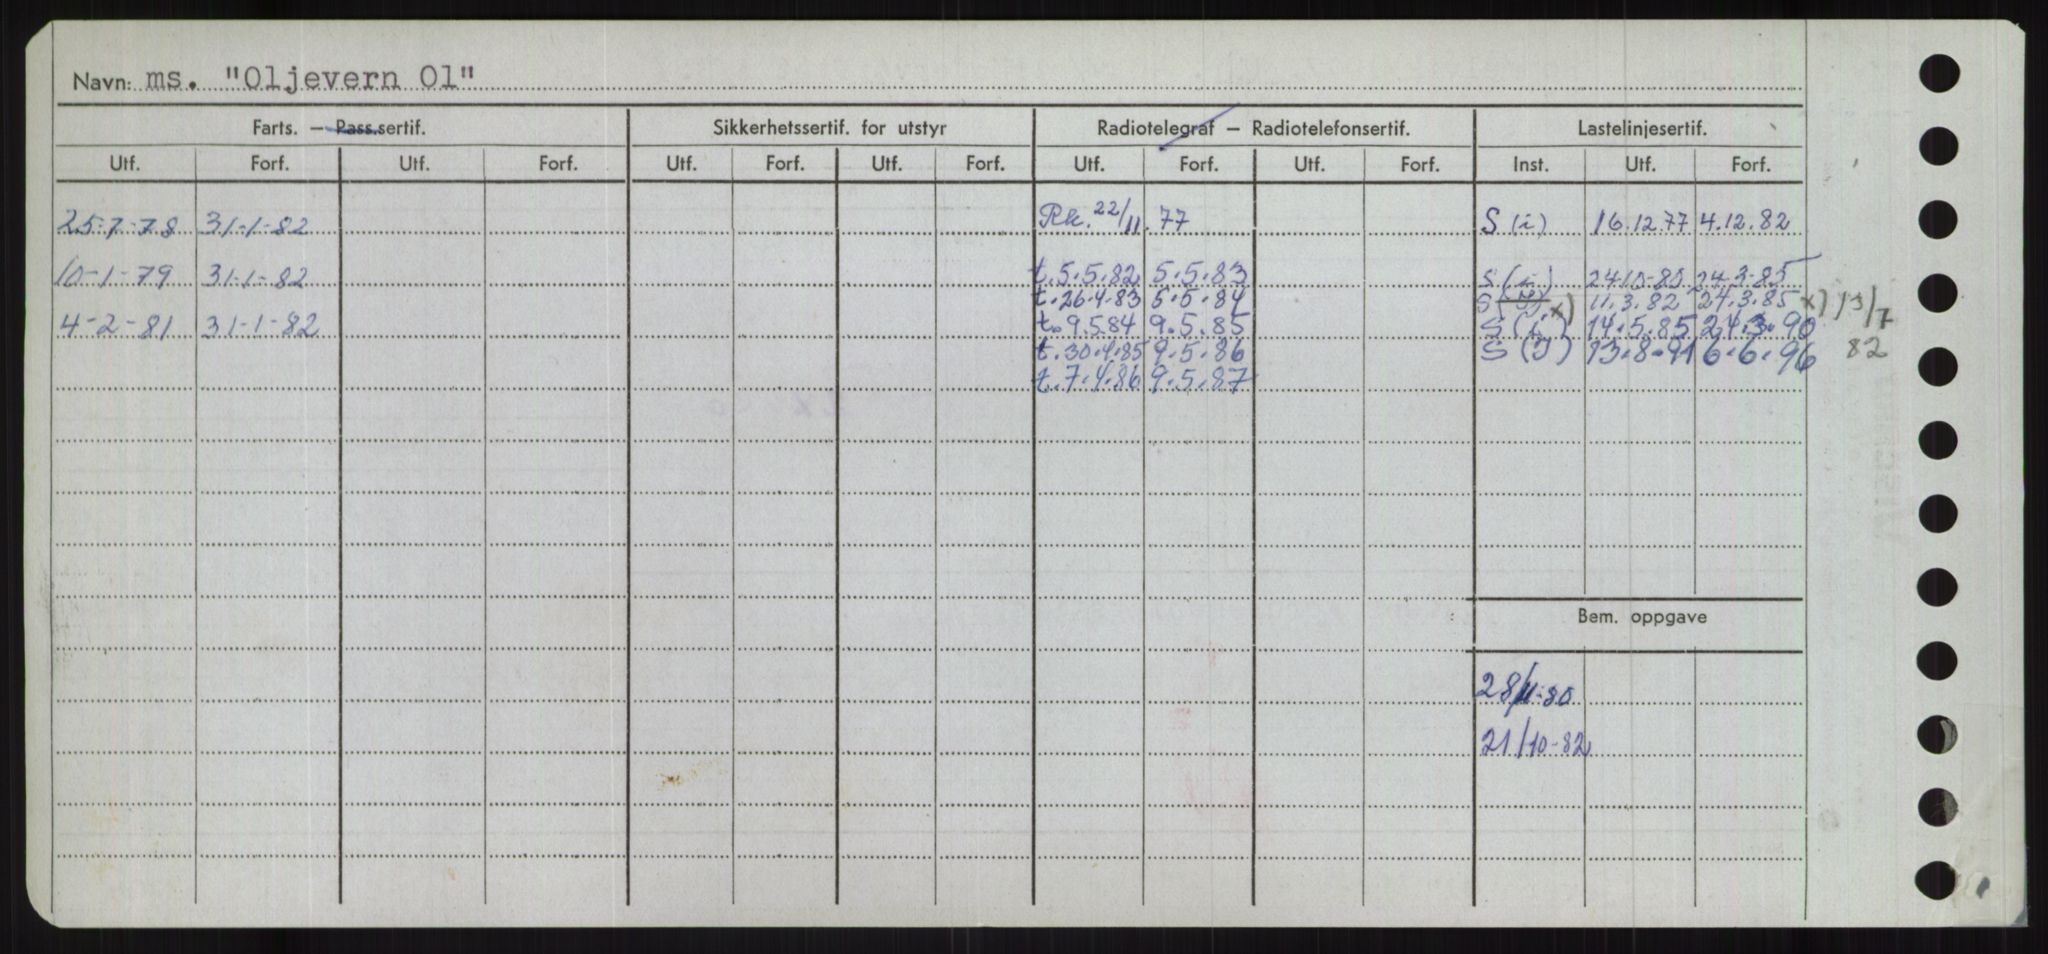 Navn: ms. "Oljevern Ol"
Farts. — Pass.sertif. Sikkerhetssertif. for utstyr Radiotelegraf — Radiotelefonsertif. Lastelinjesertif.
Utf. Forf. Utf. Forf. Utf. Forf. Utf. Forf. Utf. Forf. Utf. Forf. Inst. Utf. Forf.
25-7-78 31-1-82 Rk. 22/11. 77 S (i) 16.12.77 4.12.82
10-1-79 31-1-82 t.5.5.82 5.5.83 S (i) 24-10-80 24-3-85
t.26.4.83 5.5.84 S x) 11.3.82 24.3.85 x) 13/7
4-2-81 31-1-82 t.9.5.84 9.5.85 S (i) 14.5.85 24.3.90
t.30.4.85 9.5.86 S (I) 13.8.91 6.6.96 82
t.7.4.86 9.5.87
Bem. oppgave
28/11-80
21/10-82